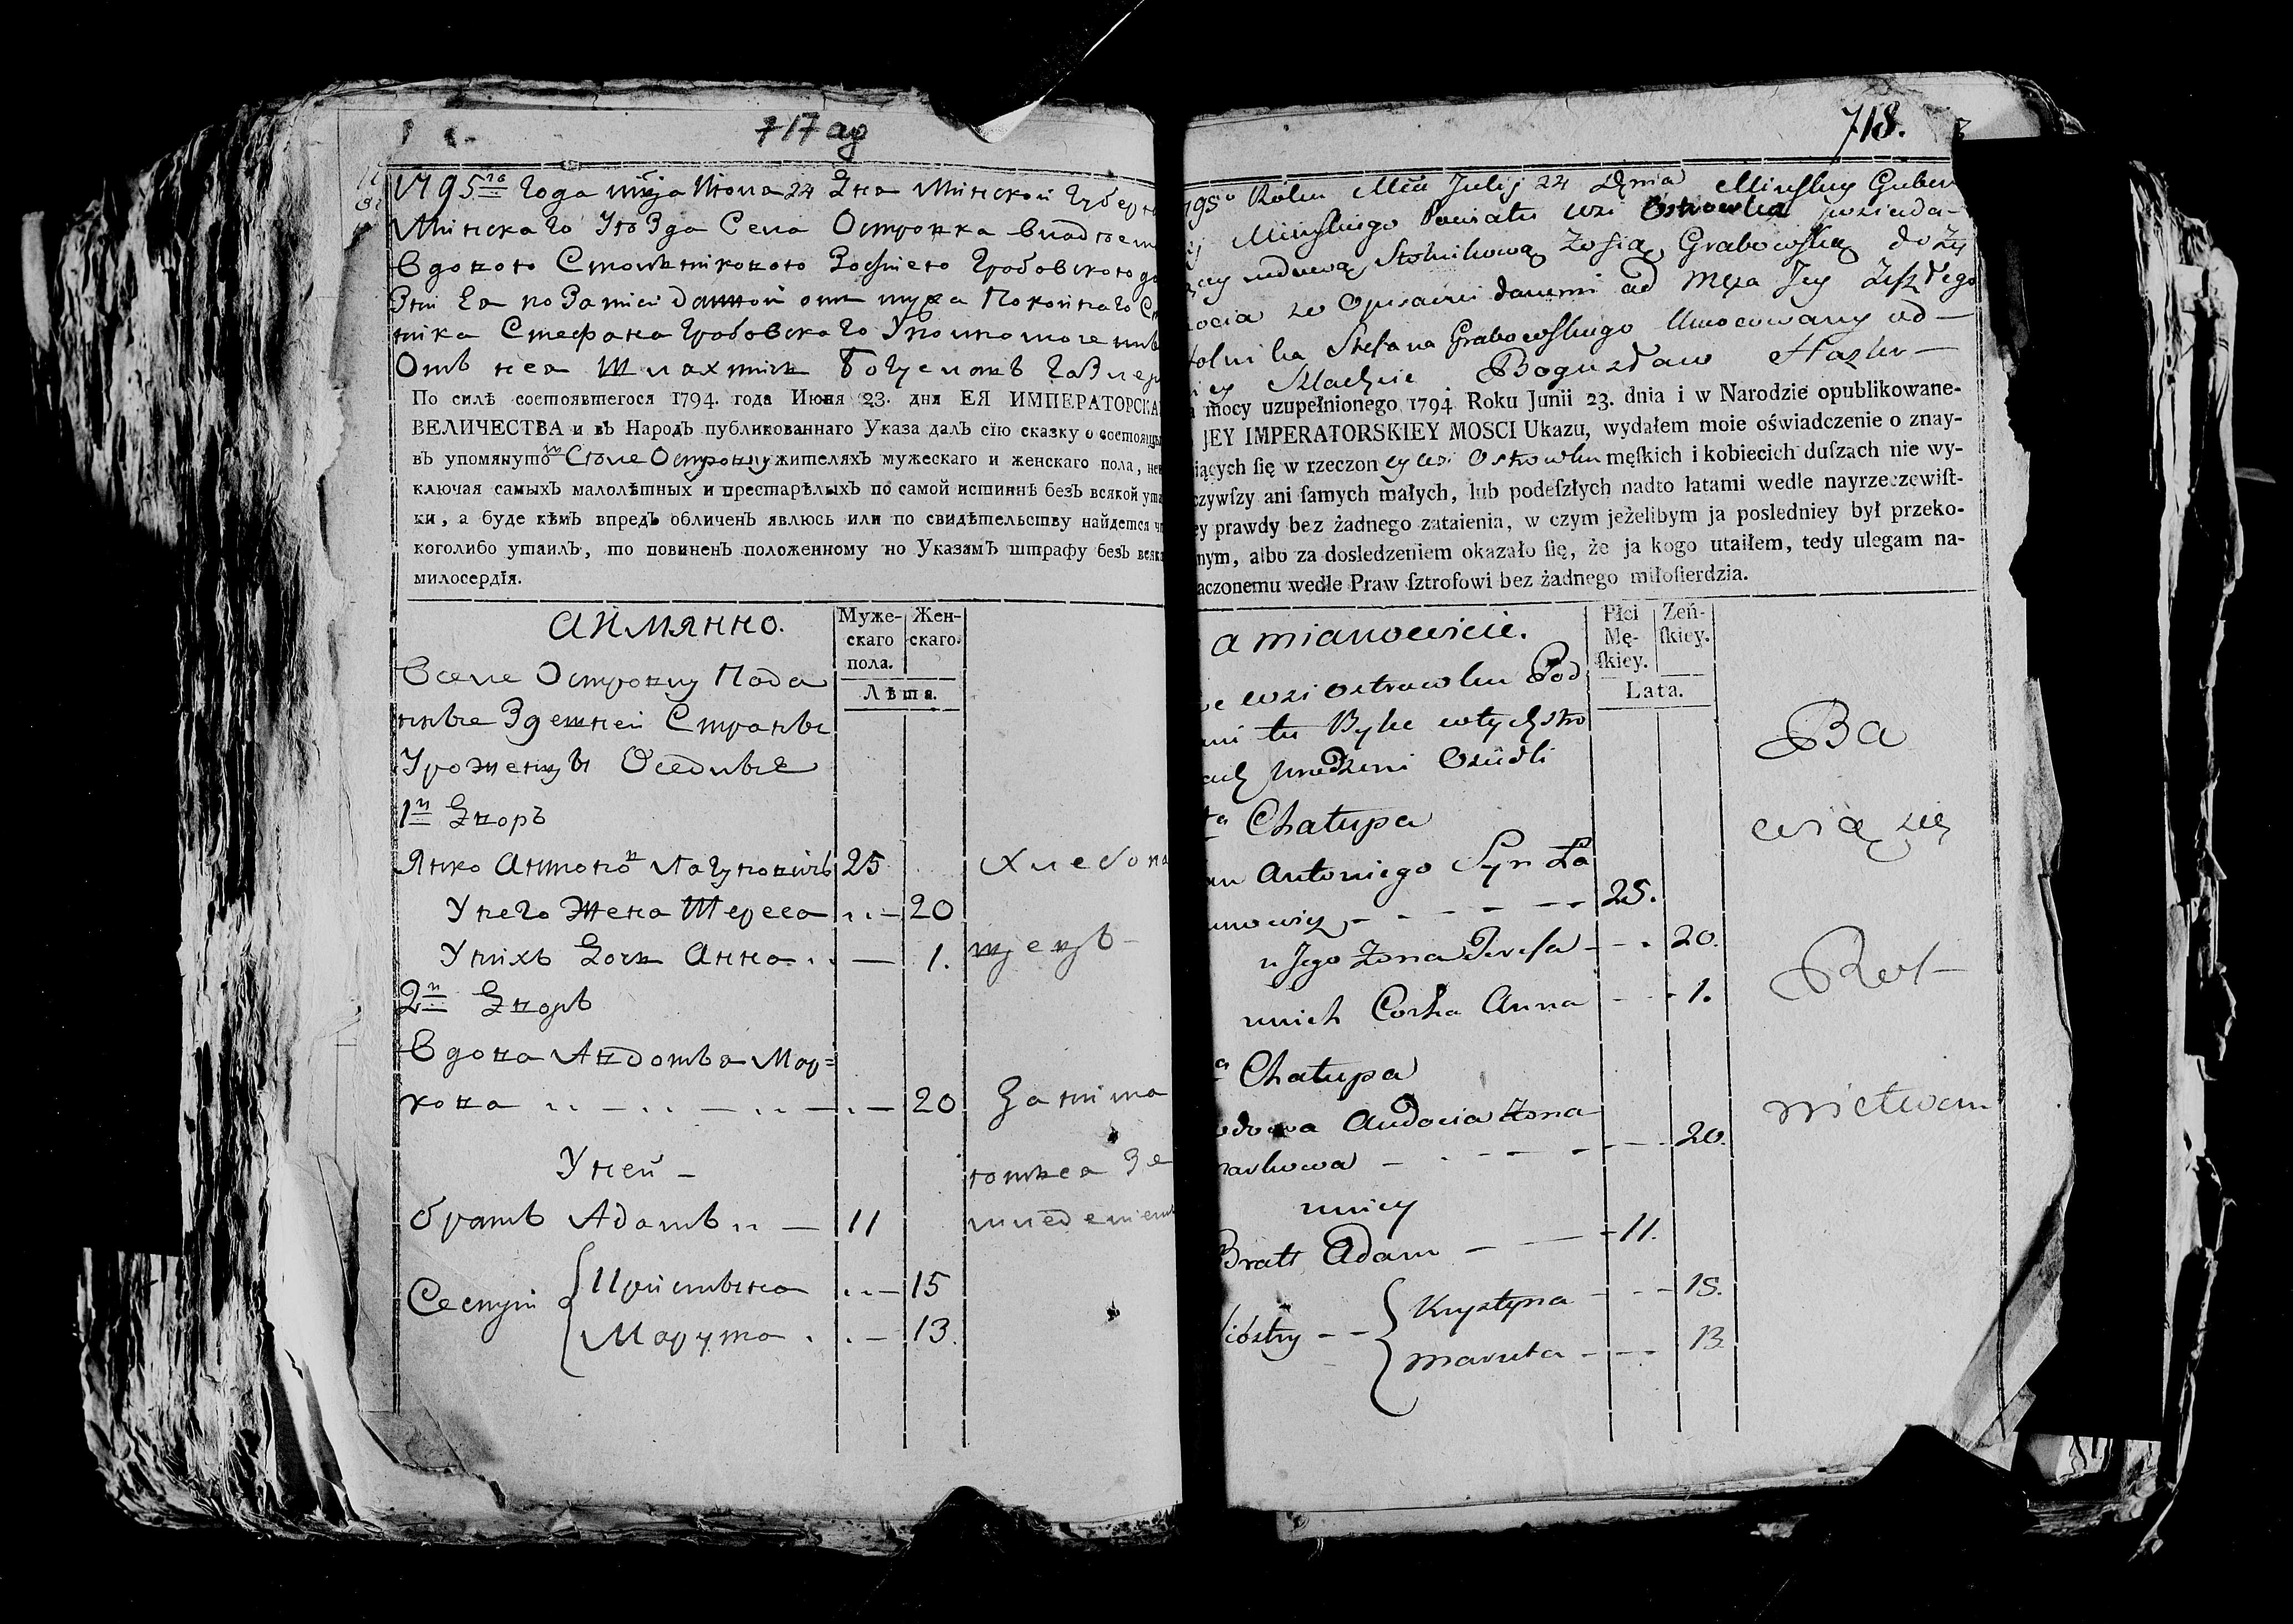 717 ag
1795го Года мца Июля 24 Дня Минской Губерн
Минскаго Уѣзда Села Островка владѣем
вдовою Стольниковою Зофиею Грабовскою до
Эти Ея по Записи данной отъ мужа Покойнаго С
ника Стефана Грабовскаго Уполномоченны
Отъ нея Шляхтичь Богуславъ
По силѣ состоявшегося 1794. года Июня 23. дня ЕЯ ИМПЕРАТОРСКА
ВЕЛИЧЕСТВА и въ Народъ публикованнаго Указа далъ сїю сказку о состоящи
въ упомянутомъ Селе Островку жителяхъ мужескаго и женскаго пола, не
ключая самыхъ малолѣтныхъ и престарѣлыхъ по самой истиннѣ безъ всякой ута
ки, а буде кѣмъ впредь обличенъ явлюсь или по свидѣтельству найдется ч
коголибо утаилъ, то повиненъ положенному по Указамъ штрафу безъ всяк
милосердїя.
Аймянно.
Муже-
скаго
пола.
Жен-
скаго.
Лѣта.
Вселе Островку Пода
нные Здешней Страны
Уроженцы Оседлые
1й Дворъ
Янко Антоновъ Лагуновичь 25 Хлебопа
У него Жена Тереса 20
У нихъ Дочь Анна 1. щецъ
2й Дворъ
Вдова Авдотья Мар=
кова 20 Занима
У ней
ютьса Зе
братъ Адамъ 11 мледелием
Сестры Кристына 15
Марута 13.
718.
795o Roku Mca Julij 24 Dnia Minskiey Gubern
Minskiego Powiatu wsi Ostrowka posiada-
cey wdową Stolnikową Zofią Grabowską doży
ocia ze Opisaniu danemi od Męża Jey Zeszłego
tolnika Stefana Grabowskiego Umocowany od
iey Szlachcic Bogusław
mocy uzupełnionego 1794 Roku Junii 23. dnia i w Narodzie opublikowane-
JEY IMPERATORSKIEY MOSCI Ukazu, wydałem moie oświadczenie o znay-
iących ſię w rzeczoney wsi Ostrowku męſkich i kobiecich duſzach nie wy-
czywſzy ani ſamych małych, lub podeſzłych nadto latami wedle nayrzeczewiſt-
ey prawdy bez żadnego zataienia, w czym jeżelibym ja posledniey był przeko-
nym, albo za dosledzeniem okazało ſię, że ja kogo utaiłem, tedy ulegam na-
aczonemu wedle Praw ſztrofowi bez żadnego miłoſierdzia.
a mianowicie.
Płci
Mę-
ſkiey.
Żeń-
ſkiey.
Lata.
we wsi Ostrowku Pod
ani tu Byłe w tych stro
ach Urodzeni Osiedli
Ba
ta Chałupa
wią się
an Antoniego Syn Ła
unowicz 25.
u Jego Żona Teresa 20.
Rol
unich Corka Anna 1.
a Chałupa
nictwem
odowa Audocia Żona
markowa 20.
uniey
Bratt Adam 11.
Siostry Krystyna 15.
Maruta 13